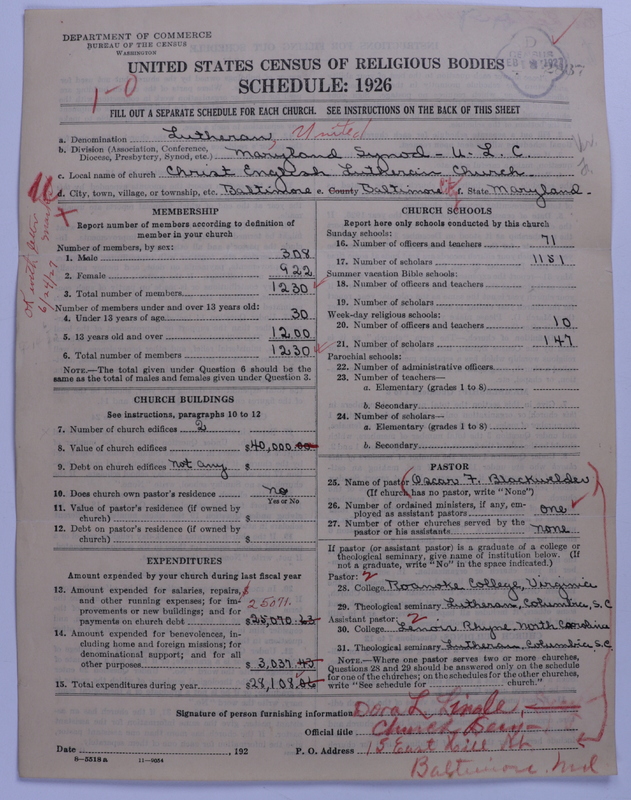 DEPARTMENT OF COMMERCE
BUREAU OF THE CENSUS
WASHINGTON
UNITED STATES CENSUS OF RELIGIOUS BODIES
SCHEDULE: 1926
1-0
FILL OUT A SEPARATE SCHEDULE FOR EACH CHURCH. SEE INSTRUCTIONS ON THE BACK OF THIS SHEET
a. Denomination Lutheran, United
b. Division (Association, Conference, Diocese, Presbytery, Synod, etc.) Maryland Synod - U. L. C.
c. Local name of church Christ English Lutheran Church.
d. City, town, village, or township, etc. Baltimore e. County Baltimore City f. State Maryland.
MEMBERSHIP
Report number of members according to definition of
member in your church
Number of members, by sex:
1. Male 308
2. Female 922
3. Total number of members 1230
Number of members under and over 13 years old:
4. Under 13 years of age 30
5. 13 years old and over 1200
6. Total number of members 1230
NOTE.—The total given under Question 6 should be the
same as the total of males and females given under Question 3.
CHURCH BUILDINGS
See instructions, paragraphs 10 to 12
7. Number of church edifices 2
8. Value of church edifices $40,000.00
9. Debt on church edifices not any $
10. Does church own pastor's residence no
Yes or No.
11. Value of pastor's residence (if owned by
church) $
12. Debt on pastor's residence (if owned by
church) $
EXPENDITURES
Amount expended by your church during last fiscal year
13. Amount expended for salaries, repairs, $
and other running expenses; for im- 25071.
provements or new buildings; and for
payments on church debt $25,070.63
14. Amount expended for benevolences, in-
cluding home and foreign missions; for
denominational support; and for all
other purposes $3,037.43
15. Total expenditures during year $28,108.06
CHURCH SCHOOLS
Report here only schools conducted by this church
Sunday schools:
16. Number of officers and teachers 71
17. Number of scholars 1181
Summer vacation Bible schools:
18. Number of officers and teachers
19. Number of scholars
Week-day religious schools:
20. Number of officers and teachers 10
21. Number of scholars 147
Parochial schools:
22. Number of administrative officers
23. Number of teachers—
a. Elementary (grades 1 to 8)
b. Secondary
24. Number of scholars—
a. Elementary (grades 1 to 8)
b. Secondary
PASTOR
25. Name of pastor (Oscar F. Blackwelder)
(If church has no pastor, write "None")
26. Number of ordained ministers, if any, em-
ployed as assistant pastors one
27. Number of other churches served by the
pastor or his assistants none
If pastor (or assistant pastor) is a graduate of a college or
theological seminary, give name of institution below. (If
not a graduate, write "No" in the space indicated.)
Pastor: 2
28. College Roanoke College, Virginia
29. Theological seminary Lutheran, Columbia, S.C
Assistant pastor: 2
30. College Lenoir Rhyne North Carolina
31. Theological seminary Lutheran, Columbia S.C.
NOTE.—Where one pastor serves two or more churches,
Questions 28 and 29 should be answered only on the schedule
for one of the churches; on the schedules for the other churches,
write "See schedule for church."
Signature of person furnishing information Dora L Lingle
Official title Church Secy
Date , 192 P. O. Address 15 East Hill St
Baltimore Md
8—5518a 11—9054